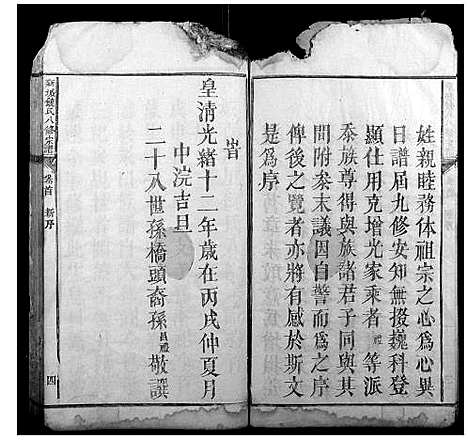 姓親睦務体祖宗之心爲心異
日譜屆九修安知無掇巍科登
顯仕用克增光家乘者禮等派
忝族尊得與族諸君子同與其
間附叅末議因自警而爲之序
俾後之覽者亦將有感於斯文
是爲序
皇清光緒十二年歲在丙戌仲夏月
中浣吉旦
二十八世孫橋頭裔孫昌禮敬譔
氏八修宗譜
卷首
新序
四